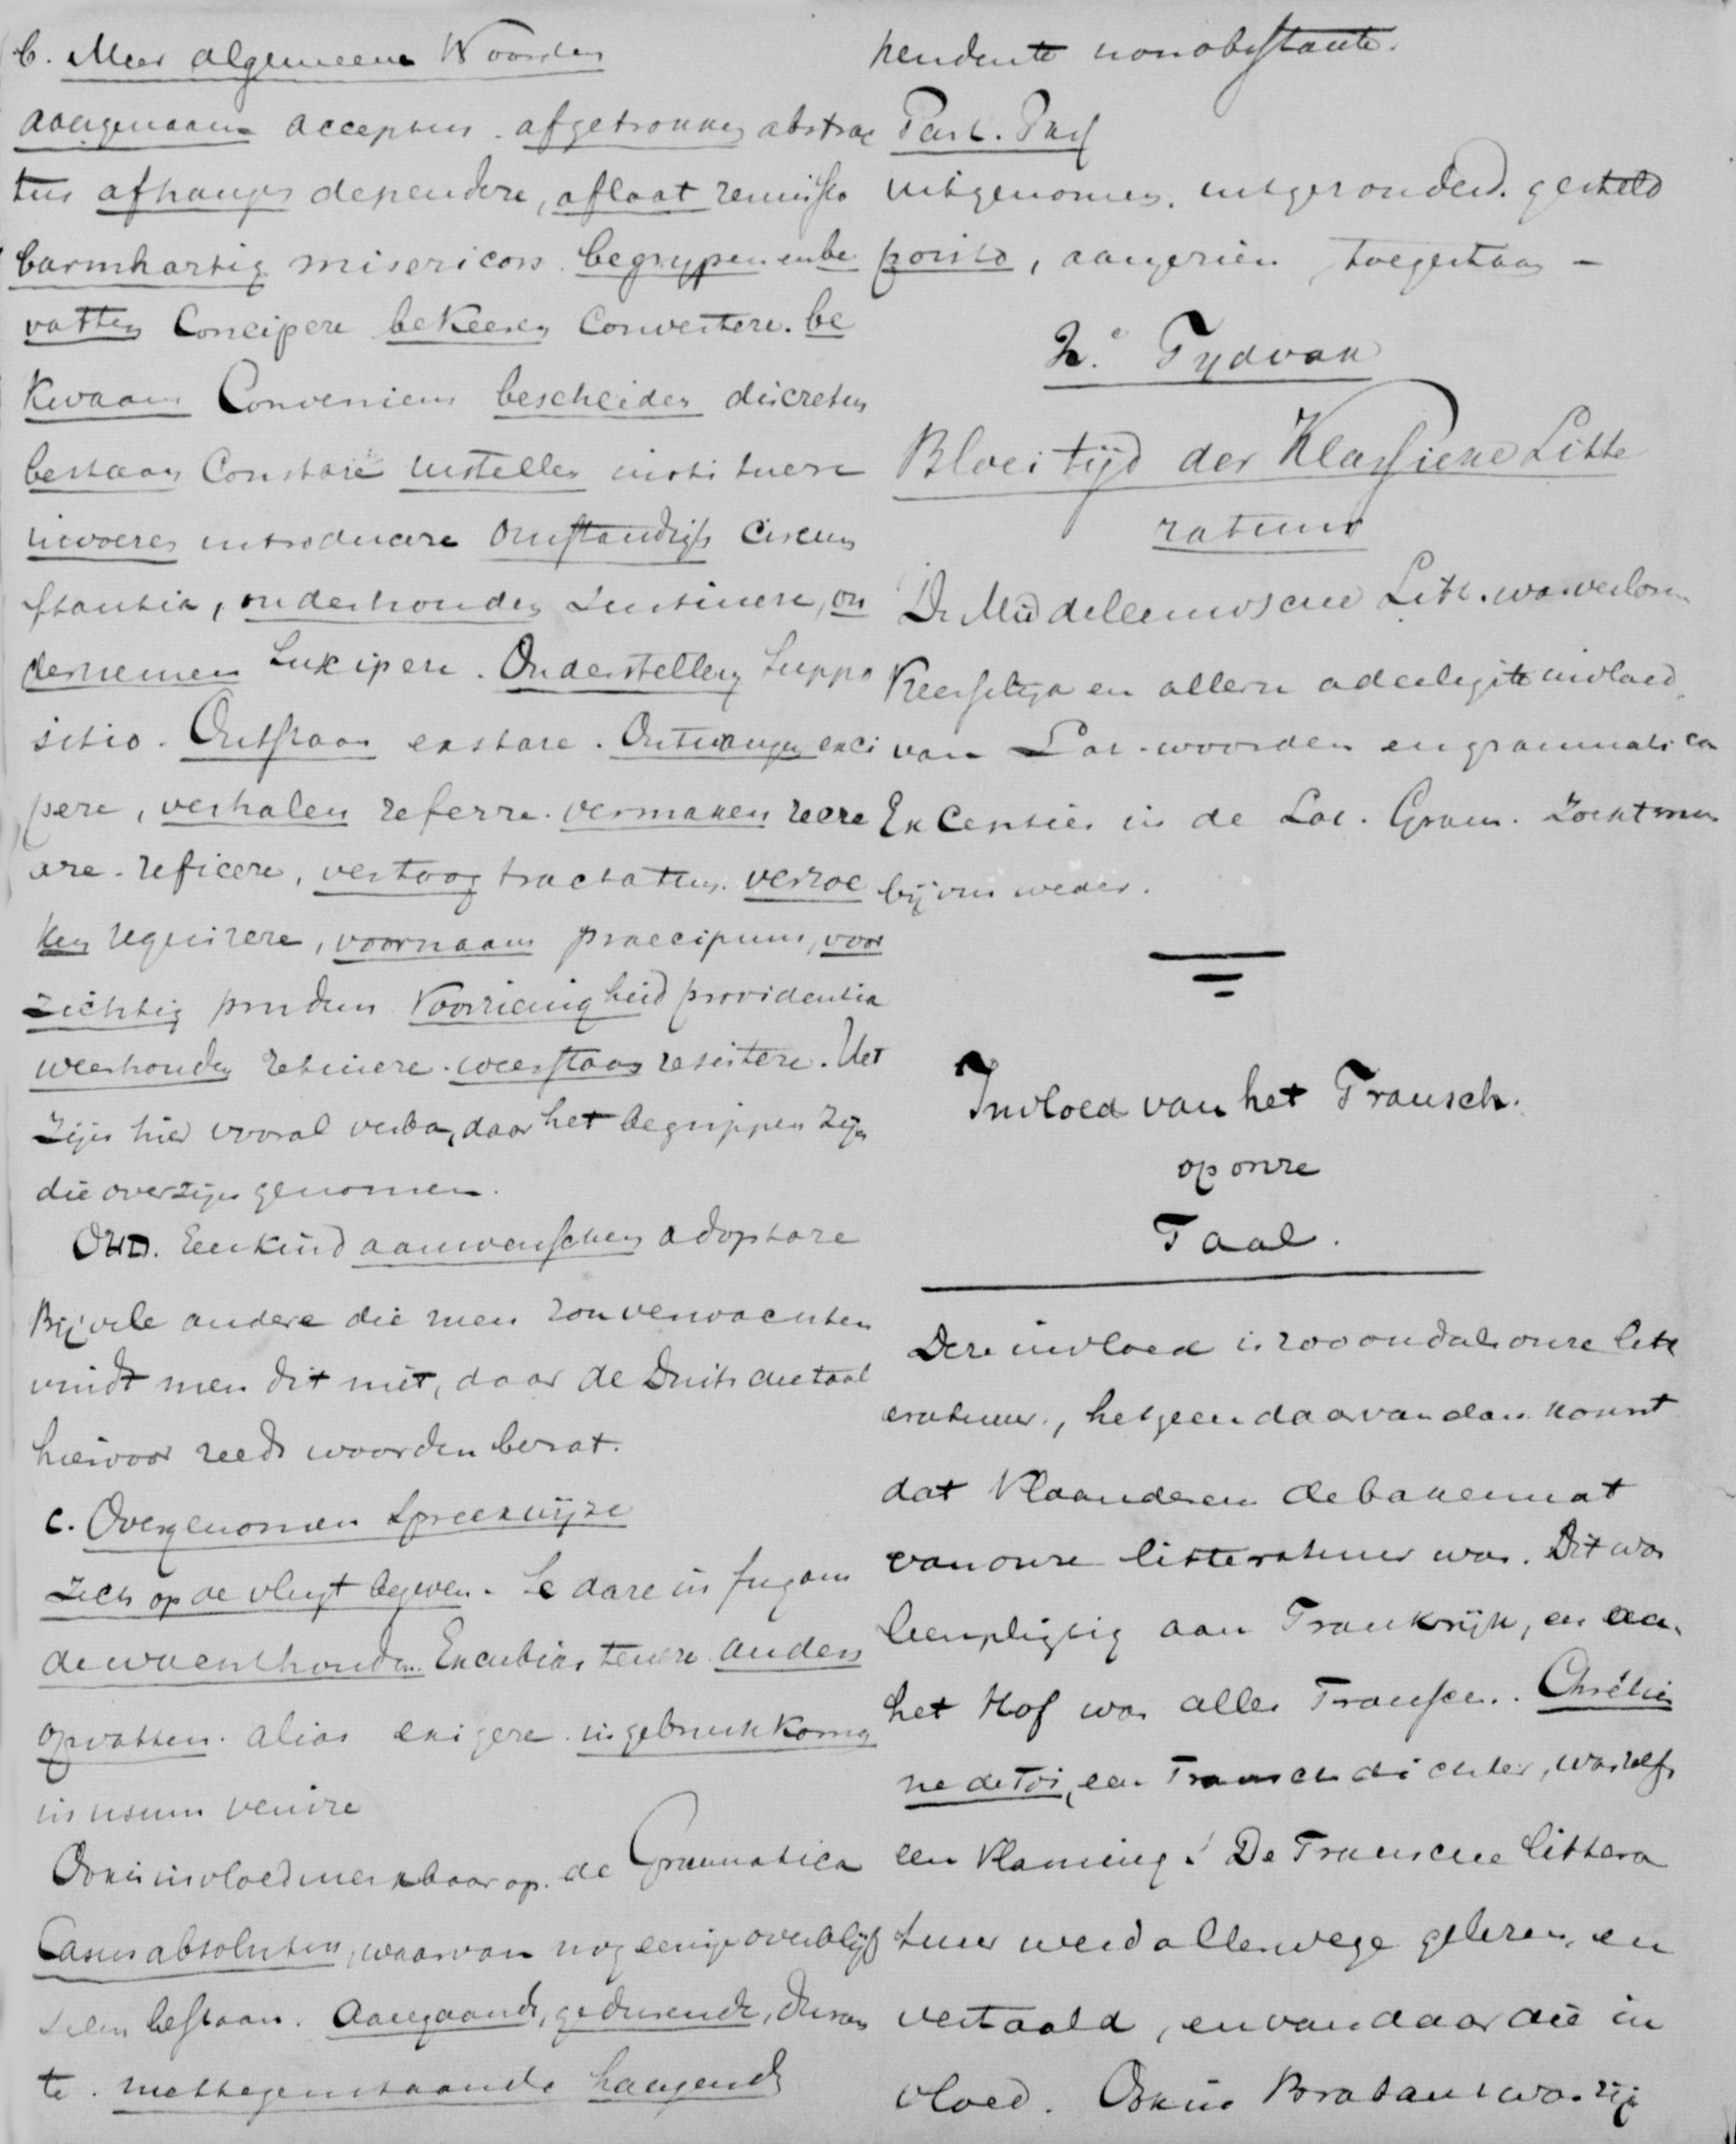 b. Meer algemeene Woorden
aangenaam acceptus. afgetrokken abstrac
tus afhangen dependere, aflaat remissio
barmhartig misericors. begrypen en be
vatten Concipere bekeeren Convertere. be
kwaam Conveniens bescheiden discretus
bestaan Constare instellen instituere
invoeren introducere Omstandigh Circum
stantia, onderhouden sustinere, on
dernemen suscipere. Onderstelling suppo
sitio. Ontstaan exstare. Ontvangen exci
pere, verhalen referre. vermaken recre
are. reficere, vertoog tractatus. verzoe
ken requirere, voornaam praecipuus, voor
zichtig prudens Voorzienigheid providentia
weerhouden retinere. weerstaan resistere. Het
zijn hier vooral verba, daar het begrippen zijn
die over zijn genomen.
OUD. Een kind aanwenschen adoptare
Bij vele andere die men zou verwachten
vindt men dit niet, daar de Duitsche taal
hiervoor reeds woorden bezat.
c. Overgenomen Spreekwijze
zich op de vlugt begeven. Se dare in fugam
de wacht houden. Excubias tenere anders
opvatten. alias exigere. in gebruik komen
in usum venire
Ook is invloed merkbaar op. de Grammatica
Casus absolutus, waarvan nog eenige overblijf
selen bestaan. Aangaande, gedurende, duran
te. niettegenstaande hangende
pendente nonobstante.
Part. Perf
uitgenomen. uitgezonderd. gesteld
posito, aangezien, toegestaan -
2e Tydvak
Bloeitijd der Klassieke Litte
ratuur
De Middeleeuwsche Litt. was verloren
Keerseltijn en allern adeeligste invloed
van Lat. woorden en grammatica
En Centies in de Lat. Gram. zocht men
bij ons weder.
Invloed van het Fransch.
op onze
Taal.
Deze invloed is zoo oud als onze litt
eratuur, hetgeen daarvan dan komt
dat Vlaanderen de bakermat
van onze litteratuur was. Dit was
leenpligtig aan Frankrijk, en aan
het Hof was alles Fransch. Chrétien
ne de Troi, een Fransch dichter, was zelfs
een Vlaming! De Fransche littera
tuur werd allerwege gelezen, en
vertaald, en van daar die in
vloed. Ook in Brabant was zij